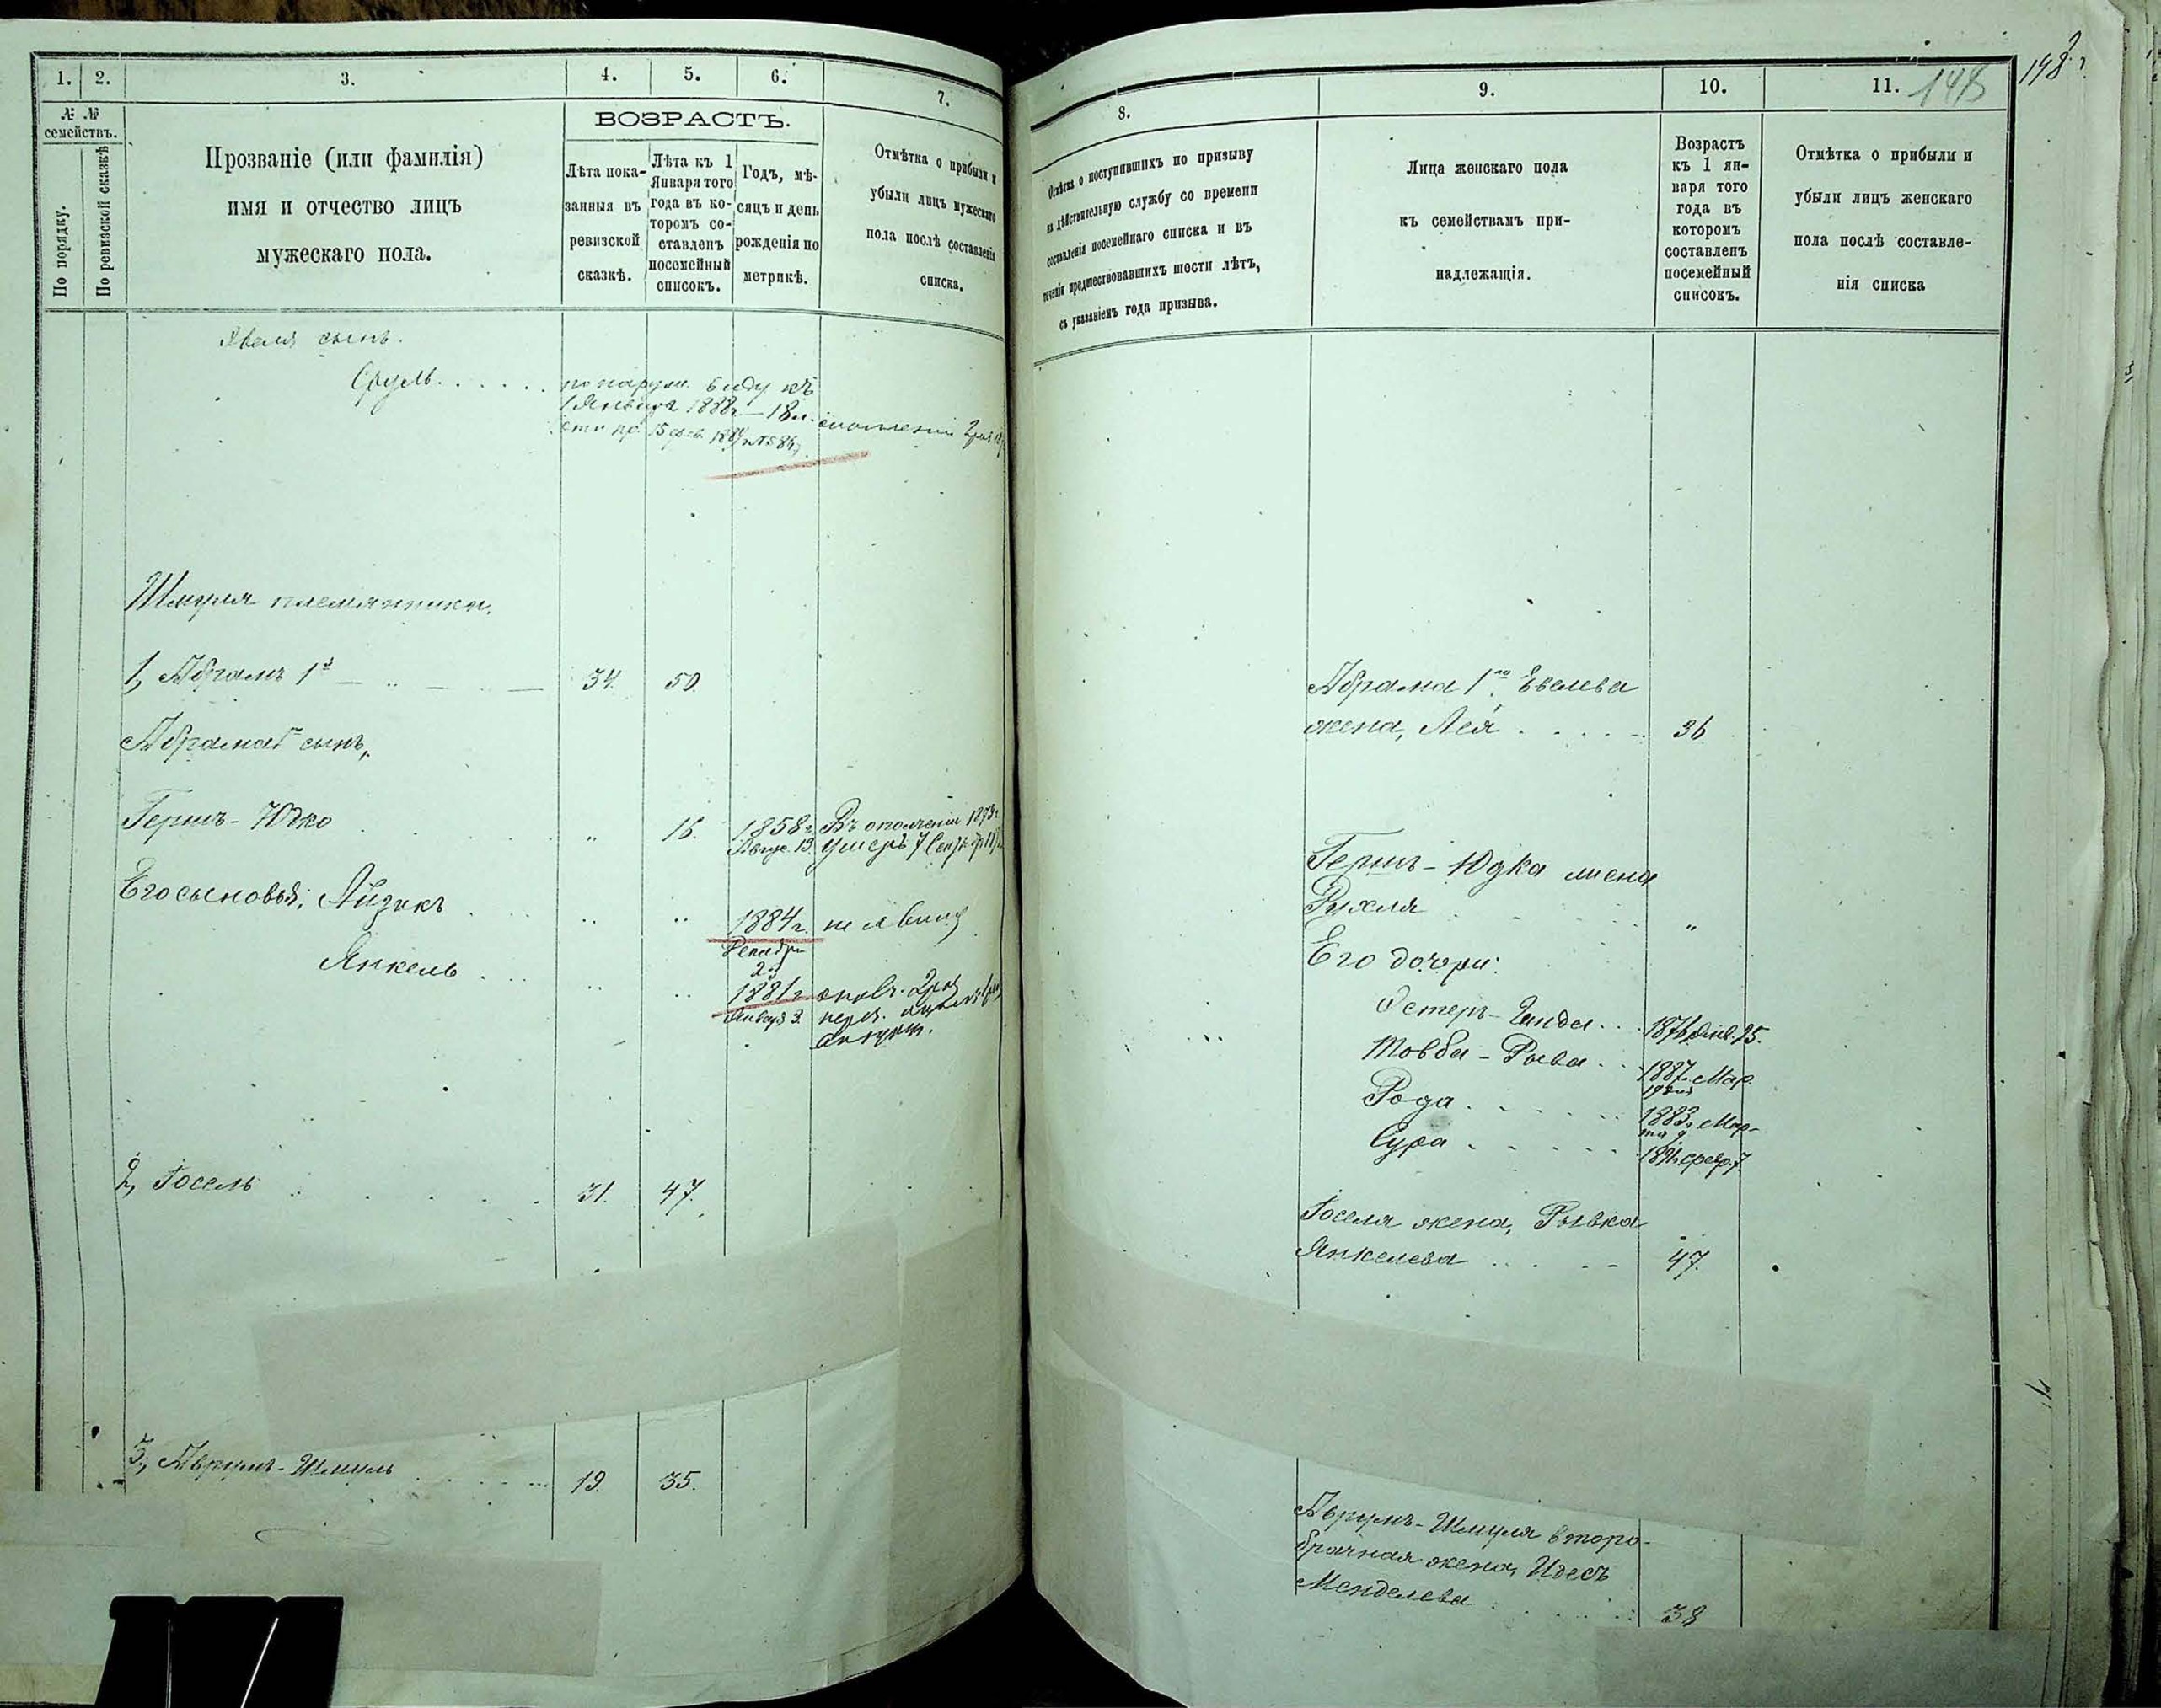 1. 2. 3. 4. 5. 6. 7.
№ №
семействъ.
По порядку.
По ревизской сказкѣ
Прозваніе (или фамилія)
имя и отчество лицъ
мужескаго пола.
ВОЗРАСТЪ.
Лѣта пока-
занныя въ
ревизской
сказкѣ.
Лѣта къ 1
Января того
года въ ко-
торомъ со-
ставленъ
посемейный
списокъ.
Годъ, мѣ-
сяцъ и день
рожденія по
метрикѣ.
Отмѣтка о прибыли и
убыли лицъ мужескаго
пола послѣ составленія
списка.
сынъ.
Сруль
по наружн. виду къ
1 Января 1888 г. — 18 л.
Шмуля племянники.
1, Абрамъ 1й 34. 50.
Абрама 1го сынъ,
Гершъ-Юдко " 16. 1858 г. Въ ополченіи 1878 г.
Авгус. 13. умеръ 7
Его сыновья: Айзикъ " " 1884 г.
Декабря
2
Янкель " " 1881 г.
Января 3.
2, Іосель 31. 47.
3, Аврумъ-Шмуль 19. 35.
8. 9. 10. 11. 148
148
Отмѣтка о поступившихъ по призыву
на дѣйствительную службу со времени
составленія посемейнаго списка и въ
теченіи предшествовавшихъ шести лѣтъ,
съ указаніемъ года призыва.
Лица женскаго пола
къ семействамъ при-
надлежащія.
Возрастъ
къ 1 ян-
варя того
года въ
которомъ
составленъ
посемейный
списокъ.
Отмѣтка о прибыли и
убыли лицъ женскаго
пола послѣ составле-
нія списка
Абрама 1го Евелева
жена, Лея 36
Гершъ-Юдка жена
Рухля "
Его дочери:
Эстеръ- 1876 Янв. 25.
Товба-Рыва 1887 Мар.
19 дня
Рода 1883 г. Мар-
та 9
Сура
Іоселя жена, Рывка
Янкелева 47.
Аврумъ-Шмуля второ-
брачная жена, Идесъ
Менделева 38